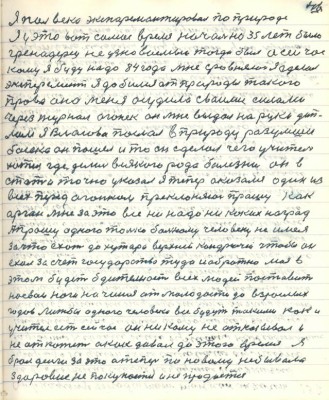 Я пол века экспарементировал по природе
Я у это вот самае время начал но 35 лет было
гренадеру не узно висемью тогда был а сейчас
кому я буду надо 84 года мне сровнялся Я зделал
эксперемент Я добился от природы такого
права она меня окудила своими силами
через журнал огонек он мне выдал на руки дип-
лом Я Власова послал в природу разумшие
босяка он пошел и то он сделал чего учителя
хотел где делил всякого рода болезни он в
стати точно указал Я тепер оказался один из
всех перед огоньком преклоняюся прашу как
орган мне за это все ни надо ни каких наград
Апрошу одного только больному человеку не имея
зачто ехат до хутара верхний кондрючий чтобы он
ехал за счет государства туда и обратно моя в
этом будет бдителность всех людей поставить
на свои ноги начиная от молодости до взрослых
годов Любил одного человека все будут такими как и
учител ест сейчас он никому не отказывал и
не откажет а каке давал до этого время Я
брал денги за это а тепер по новому небывало
здоровие не покупается и не продается